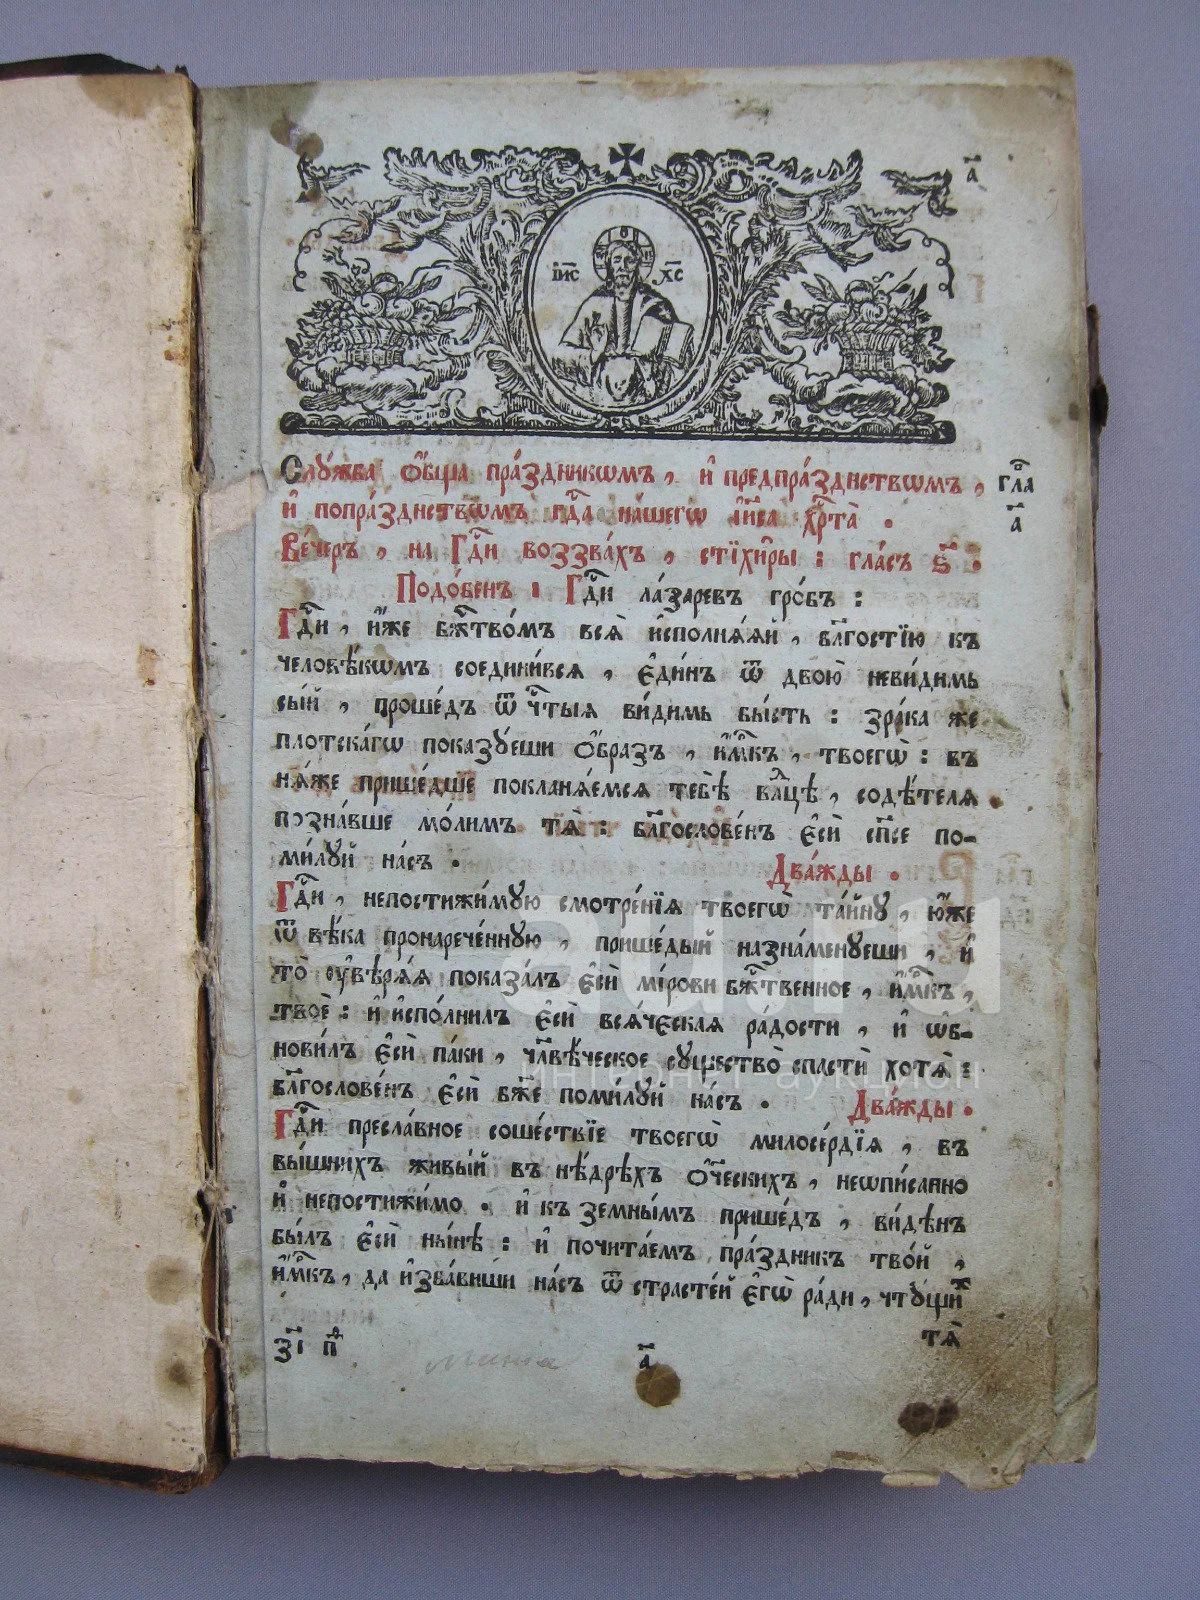 а҃
І҆И҃С Х҃С
Слꙋ́жба ѻ҆́бщаѧ пра́здникѡмъ , и҆ предпра́зднствѡмъ , гла҃
и҆ попра́зднствѡмъ гдⷭ҇а на́шегѡ і҆и҃са хрⷭ҇та̀ . а҃
Ве́черъ , на Гдⷭ҇и воззва́хъ , стїхи́ры : гла́съ ѕ҃ .
Подо́бенъ : Гдⷭ҇и ла́заревъ гро́бъ :
Гдⷭ҇и , и҆́же бжⷭ҇тво́мъ всѧ̀ и҆сполнѧ́ѧй , бл҃гостїю къ
человѣ́кѡмъ соедини́всѧ , є҆ди́нъ ѿ двою̀ неви́димь
сы́й , проше́дъ ѿ чⷭ҇тыѧ ви́димь бы́сть : зра́ка же
плотска́гѡ показꙋ́еши ѻ҆́бразъ , и҆́м҃къ , твоегѡ̀ : въ
нѧ́же прише́дше покланѧ́емсѧ тебѣ̀ влⷣцѣ , содѣ́телѧ
позна́вше мо́лимъ тѧ̀ : бл҃гослове́нъ є҆сѝ сп҃се по-
ми́лꙋй на́съ . Два́жды .
Гдⷭ҇и , непостижи́мꙋю смотре́нїѧ твоегѡ̀ та́йнꙋ , ю҆́же
ѿ вѣ́ка пронарече́ннꙋю , прише́дый назна́менꙋеши , и҆
то̀ ᲂу҆вѣрѧ́ѧ показа́лъ є҆сѝ мі́рови бжⷭ҇твенное , и҆́м҃къ ,
твоѐ : и҆ и҆спо́лнилъ є҆сѝ всѧ́ческаѧ ра́дости , и҆ ѡ҆б-
нови́лъ є҆сѝ па́ки , чл҃вѣ́ческое сꙋщество̀ спастѝ хотѧ̀ :
бл҃гослове́нъ є҆сѝ бж҃е поми́лꙋй на́съ . Два́жды .
Гдⷭ҇и пресла́вное соше́ствїе твоегѡ̀ милосе́рдїѧ , въ
вы́шнихъ живы́й въ нѣ́дрѣхъ ѻ҆ч҃ескихъ , неѡпи́санно
и҆ непостижи́мо . и҆ къ земны́мъ прише́дъ , ви́дѣнъ
бы́лъ є҆сѝ ны́нѣ : и҆ почита́емъ пра́здникъ тво́й ,
и҆́м҃къ , да и҆зба́виши на́съ ѿ страсте́й є҆гѡ̀ ра́ди , чтꙋ́щиⷯ
тѧ̀
зі҃ п҃ а҃
au.ru
интернет-аукцион